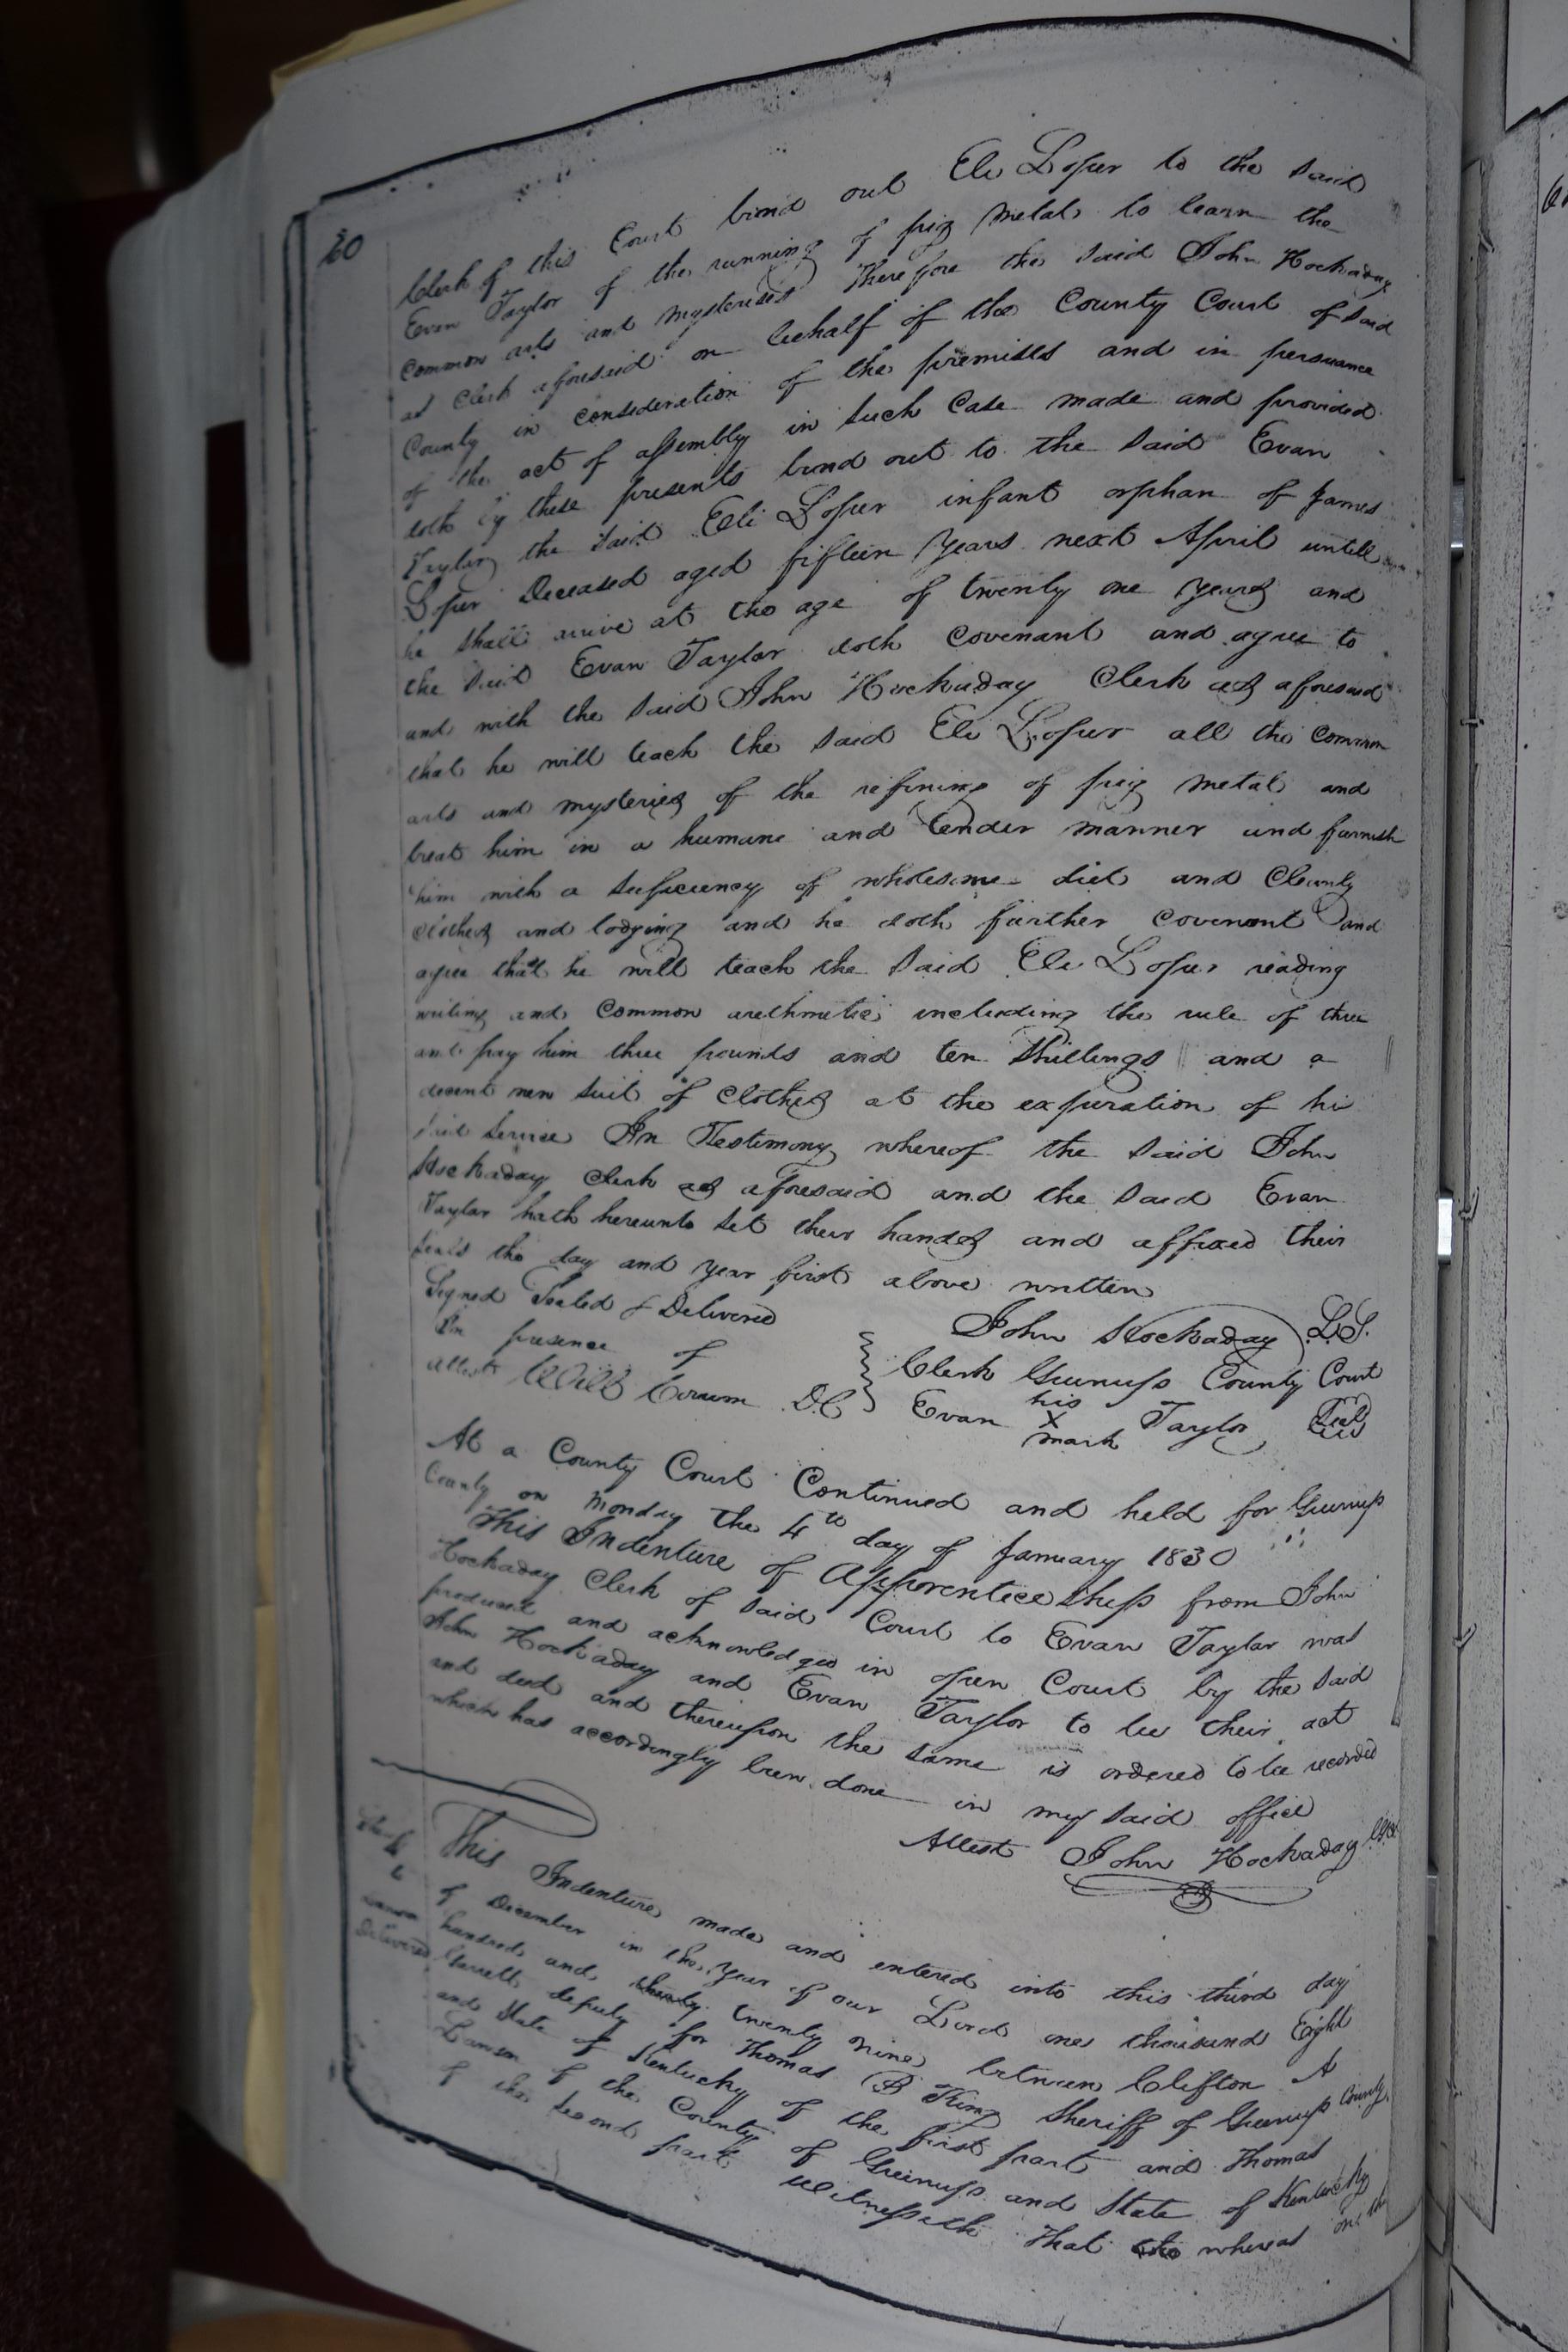 20
Clerk of this Court bind out Eli Loper to the said
Evan Taylor of the running of pig metal to learn the
common arts and mysteries Therefore the said John Hockaday
as Clerk aforesaid on behalf of the County Court of said
County in consideration of the premises and in persuance
of the act of assembly in such Case made and provided
doth by these presents bind out to the said Evan
Taylor the said Eli Loper infant orphan of James
Loper Deceased aged fifteen years next April untill
he shall arrive at the age of twenty one years and
the said Evan Taylor doth covenant and agree to
and with the said John Hockaday Clerk as aforesaid
that he will teach the said Eli Loper all the common
arts and mysteries of the refining of pig metal and
treat him in a humane and tender manner and furnish
him with a suficiency of wholesome diet and Cleanly
clothes and lodging and he doth further covenant and
agree that he will teach the said Eli Loper reading
writing and common arethmetic including the rule of three
and pay him three pounds and ten Shillings and a
decent new suit of Clothes at the expiration of his
said service In Testimony whereof the said John
Hockaday Clerk as aforesaid and the said Evan
Taylor hath hereunto set their hands and affixed their
seals the day and year first above written
Signed Sealed & Delivered
In presence of
Attest Will Corum D.C
John Hockaday L.S.
Clerk Greenup County Court
Evan his X mark Taylor Seal
At a County Court Continued and held for Greenup
County on Monday the 4th day of January 1830
This Indenture of Apprenticeship from John
Hockaday Clerk of said Court to Evan Taylor was
produced and acknowledged in open Court by the said
John Hockaday and Evan Taylor to be their act
and deed and thereupon the same is ordered to be recorded
which has accordingly been done in my said office
Attest John Hockaday
This Indenture made and entered into this third day
of December in the year of our Lord one thousand Eight
hundred and twenty nine between Clifton A
deputy for Thomas B King Sheriff of Greenup County
and State of Kentucky of the first part and Thomas
Lawson of the County of Greenup and State of Kentucky
of the second part Witnesseth That whereas on the
to
Lawson
Delivered